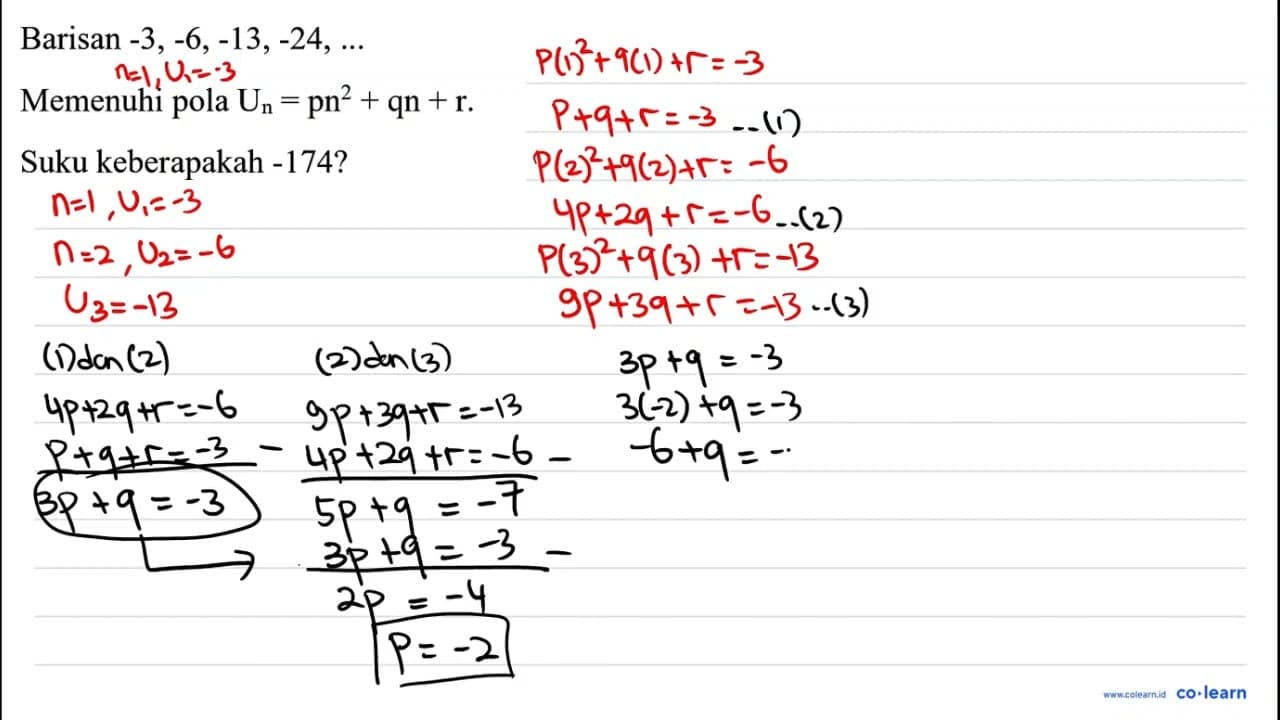 Barisan -3, -6, -13, -24, ...
n=1, U₁=-3
Memenuhi pola Uₙ = pn² + qn + r.
Suku keberapakah -174?
n=1, U₁=-3
n=2, U₂=-6
U₃=-13
P(1)²+q(1)+r=-3
P+q+r=-3 --(1)
P(2)²+q(2)+r=-6
4p+2q+r=-6 --(2)
P(3)²+q(3)+r=-13
9p+3q+r=-13 --(3)
(1) dan (2)
4p+2q+r=-6
p+q+r=-3 -
3p+q=-3
(2) dan (3)
9p+3q+r=-13
4p+2q+r=-6 -
5p+q=-7
3p+q=-3 -
2p=-4
P=-2
3p+q=-3
3(-2)+q=-3
-6+q=-
www.colearn.id co·learn